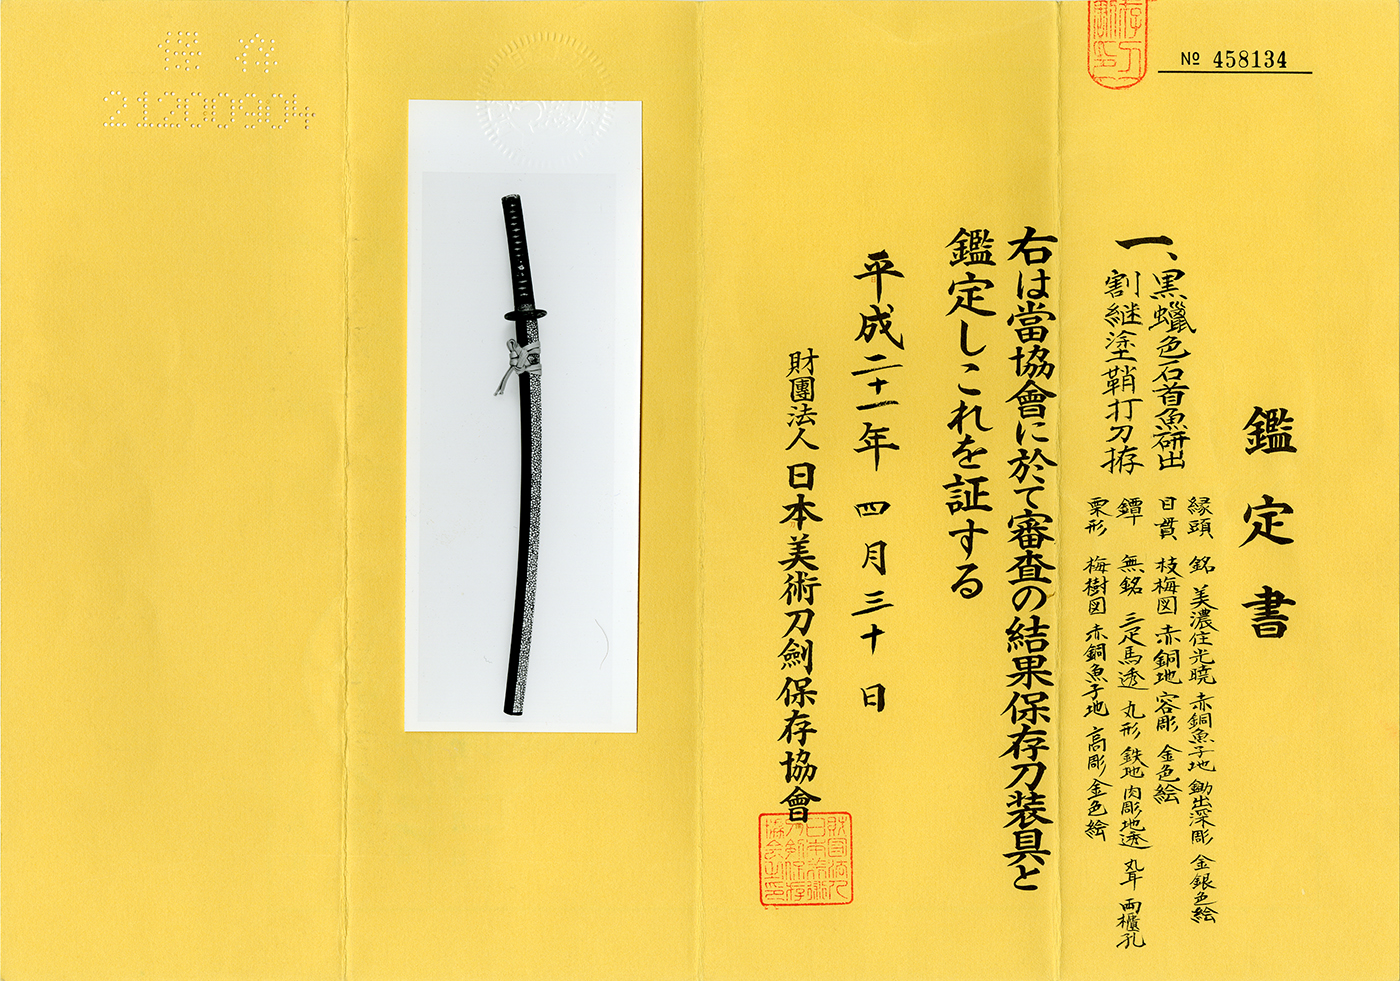 № 458134
鑑定書
一、黒蠟色石首魚研出
割継塗鞘打刀拵
縁頭 銘 美濃住光曉 赤銅魚子地 鋤出深彫 金銀色絵
目貫 枝梅図 赤銅地 容彫 金色絵
鐔 無銘 三疋馬透 丸形 鉄地 肉彫地透 丸耳 両櫃孔
栗形 梅樹図 赤銅魚子地 高彫 金色絵
右は當協會に於て審査の結果保存刀装具と
鑑定しこれを証する
平成二十一年 四月三十日
財團法人 日本美術刀劍保存協會
財団法人日本美術刀剣保存協会之印
保存
21200904